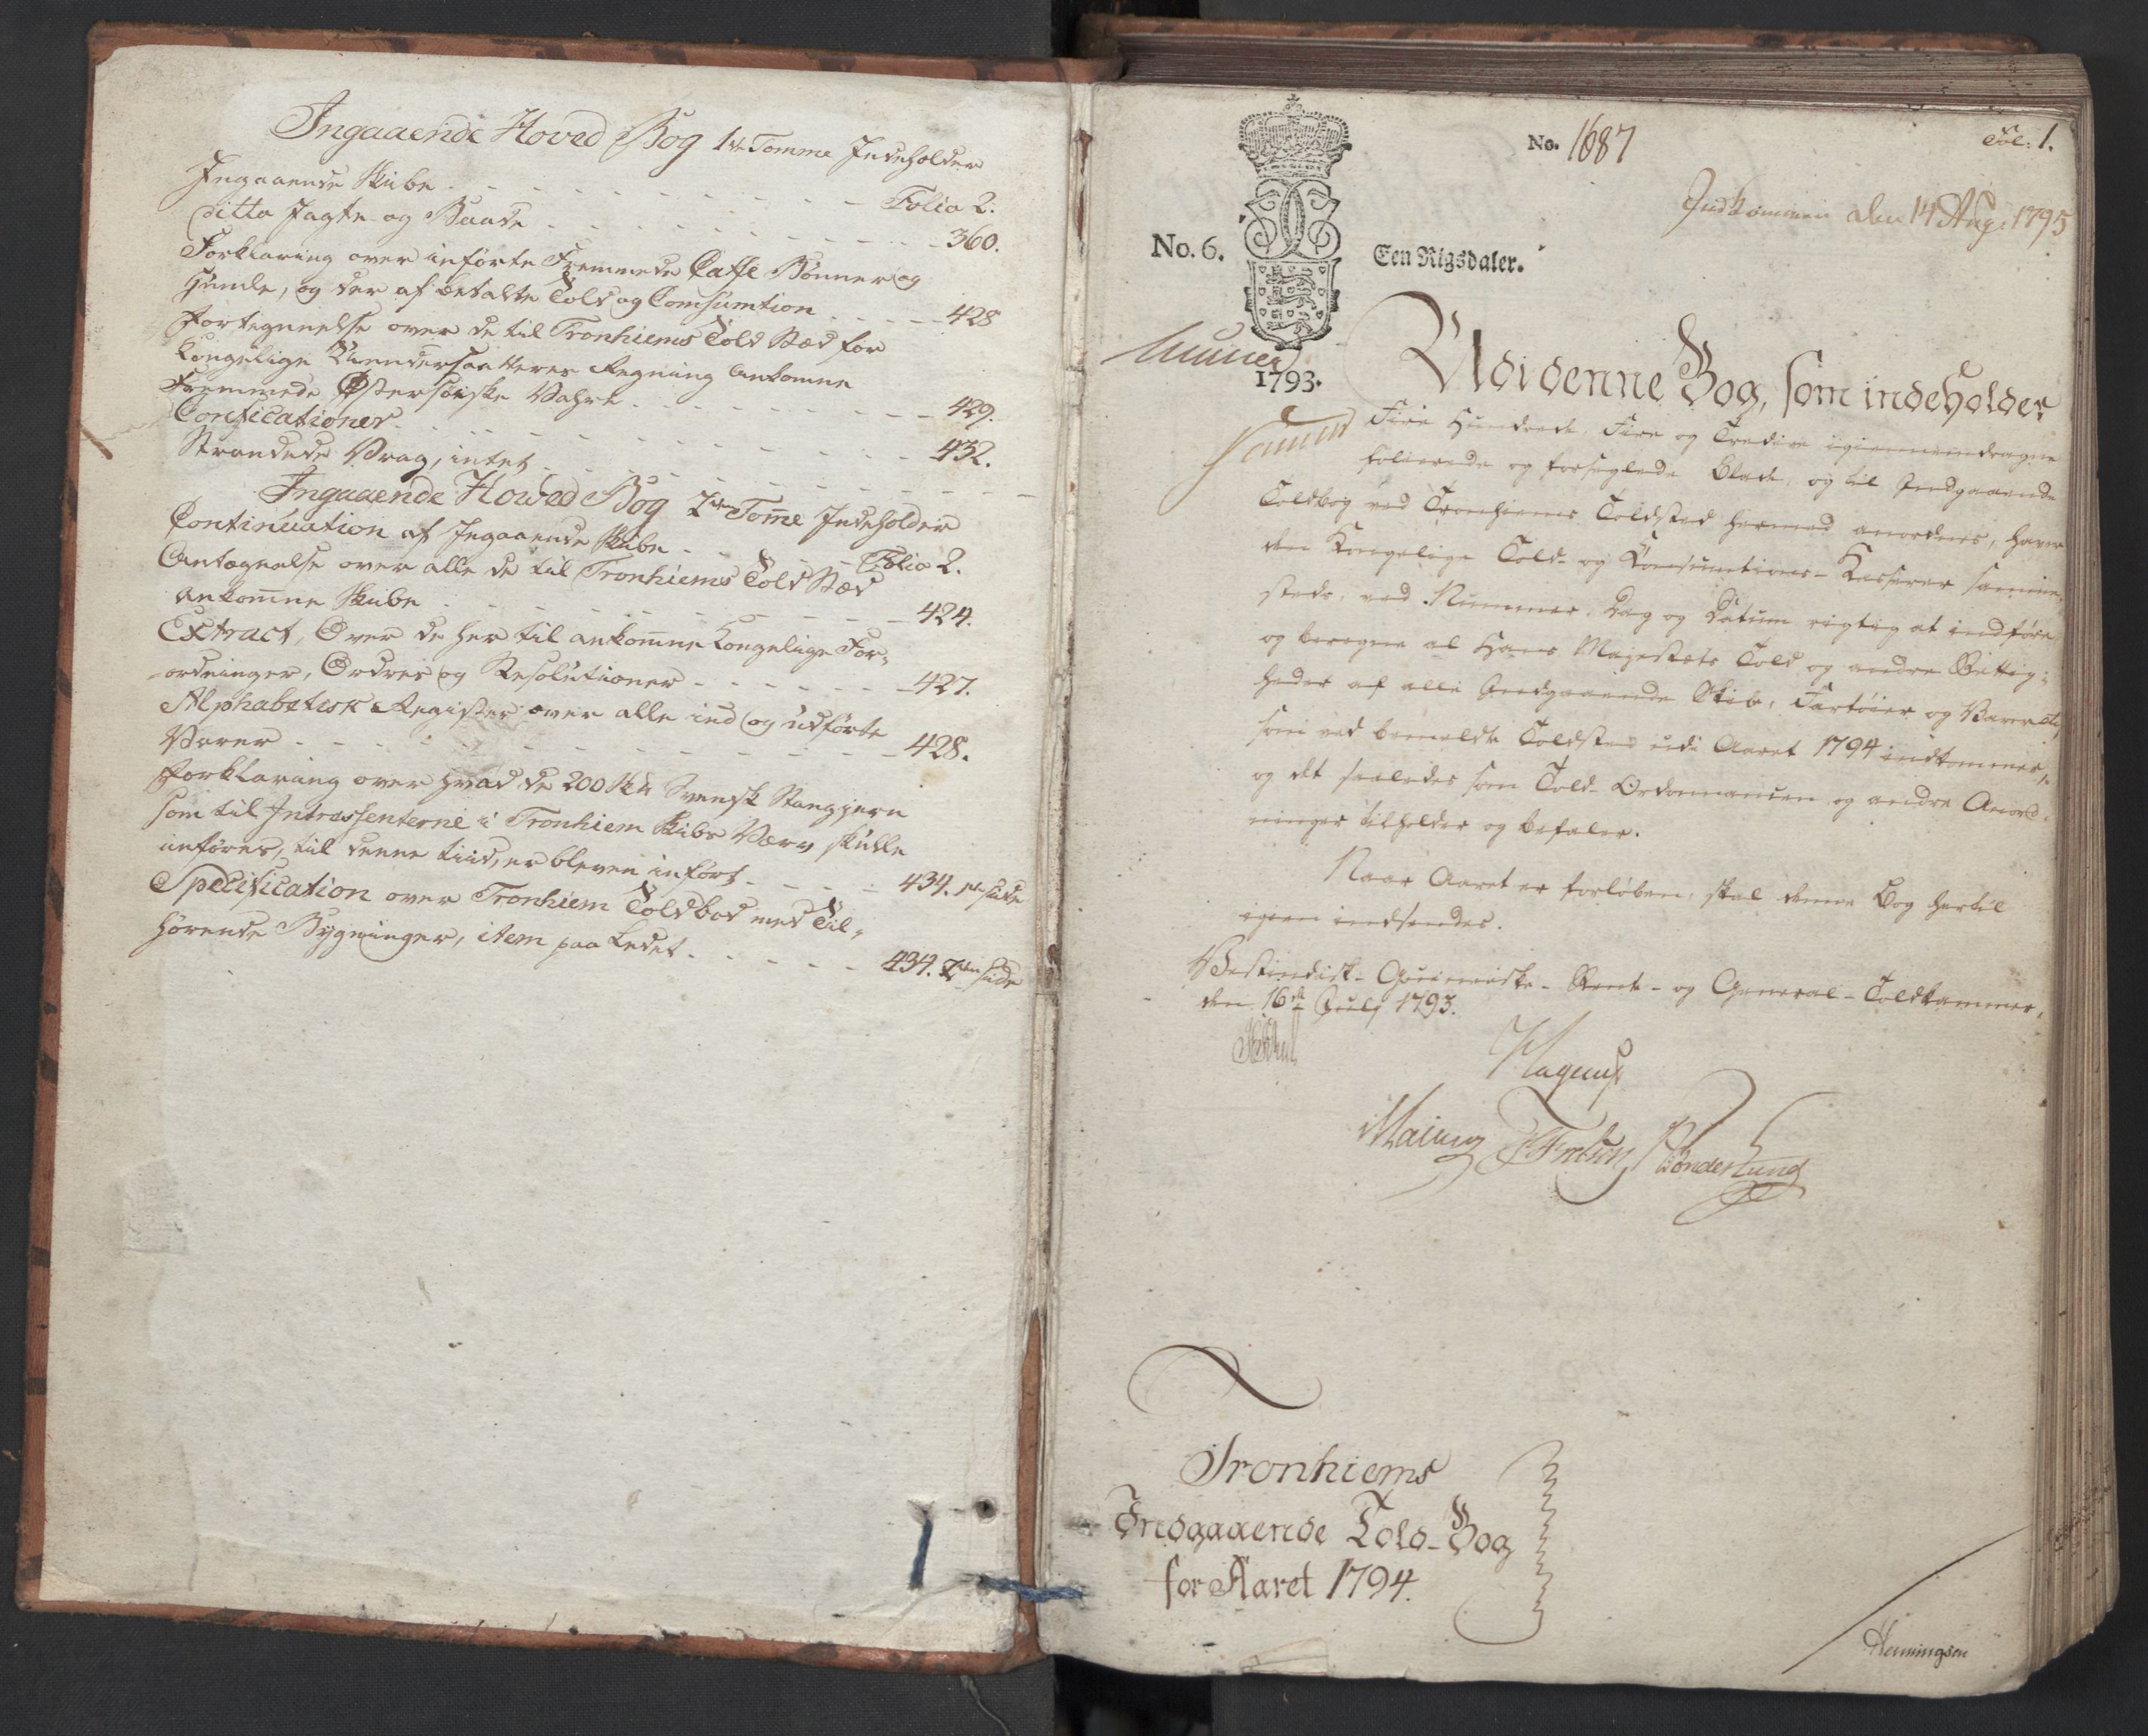 Ingaaende Hoved Bog 1ste Tomme Indeholder
Ingaaende Skibe - - - - - Folio 2.
Ditto Jagte og Baade - - - - - 360.
Forklaring over införte Fremmede Caffe Bönner og
Humle, og der af betalte Told og Comsumtion - - - - 428
Fortegnelse over de til Tronhiems Told Stæd for
Kongelige Undersaatteres Regning ankomne
Fremmede Østersöiske Vahre - - - - - 429.
Conficationer - - - - - 432.
Strandede Vrag, intet - - - - -
Ingaaende Hoved Bog 2den Tom̄e Indeholder
Continuation af Ingaaende Skibe - - - Folio 2.
Antegnelse over alle de til Tronhiems Told Stæd
ankom̄ne Skibe - - - - - 424.
Extract, Over de her til ankom̄ne Kongelige For-
ordninger, Ordres og Resolutioner - - - - - 427.
Alphabetisk Register over alle ind og udförte
Varer - - - - - 428.
Forklaring over hvad de 200 Sk℔ Svensk Stangjern
som til Intressenterne i Tronhiem Skibs Værv skulle
införes, til denne tiid, er bleven infört - - - - 434. 1ste side
Specification over Tronhiem Toldbod med Til-
hörende Bygninger, item paa Ledet - - - - - 434. 2den side
No. 1687
Fol: 1.
Indkommen den 14 Aug: 1795
No. 6.
Een Rigsdaler.
1793.
Udi denne Bog, som indeholder
Fire Hundrede Fire og Tredive igiennemdragne
folierede og forseglede Blade, og til Indgaaende
Toldbog ved Tronhiems Toldsted hermed anordnes, haver
den Kongelige Told- og Konsumtions-Kasserer samme-
steds, ved Nummer, Dag og Datum rigtig at indföre
og beregne al Hans Majestæts Told og andre Rettig-
heder af alle Indgaaende Skibe, Fartöier og Varer etc,
som ved bemeldte Toldsted udi Aaret 1794 indkommer,
og det saaledes som Told-Ordonnancen og andre Anord-
ninger tilholder og befaler.
Naar Aaret er forlöben, skal denne Bog hertil
igien indsendes.
Vestindisk-Guineiske-Rente- og General-Toldkammer,
den 16de July 1793.
Hagerup
Sönderlund
Tronhiems
Indgaaende Told-Bog
for Aaret 1794.
Henningsen